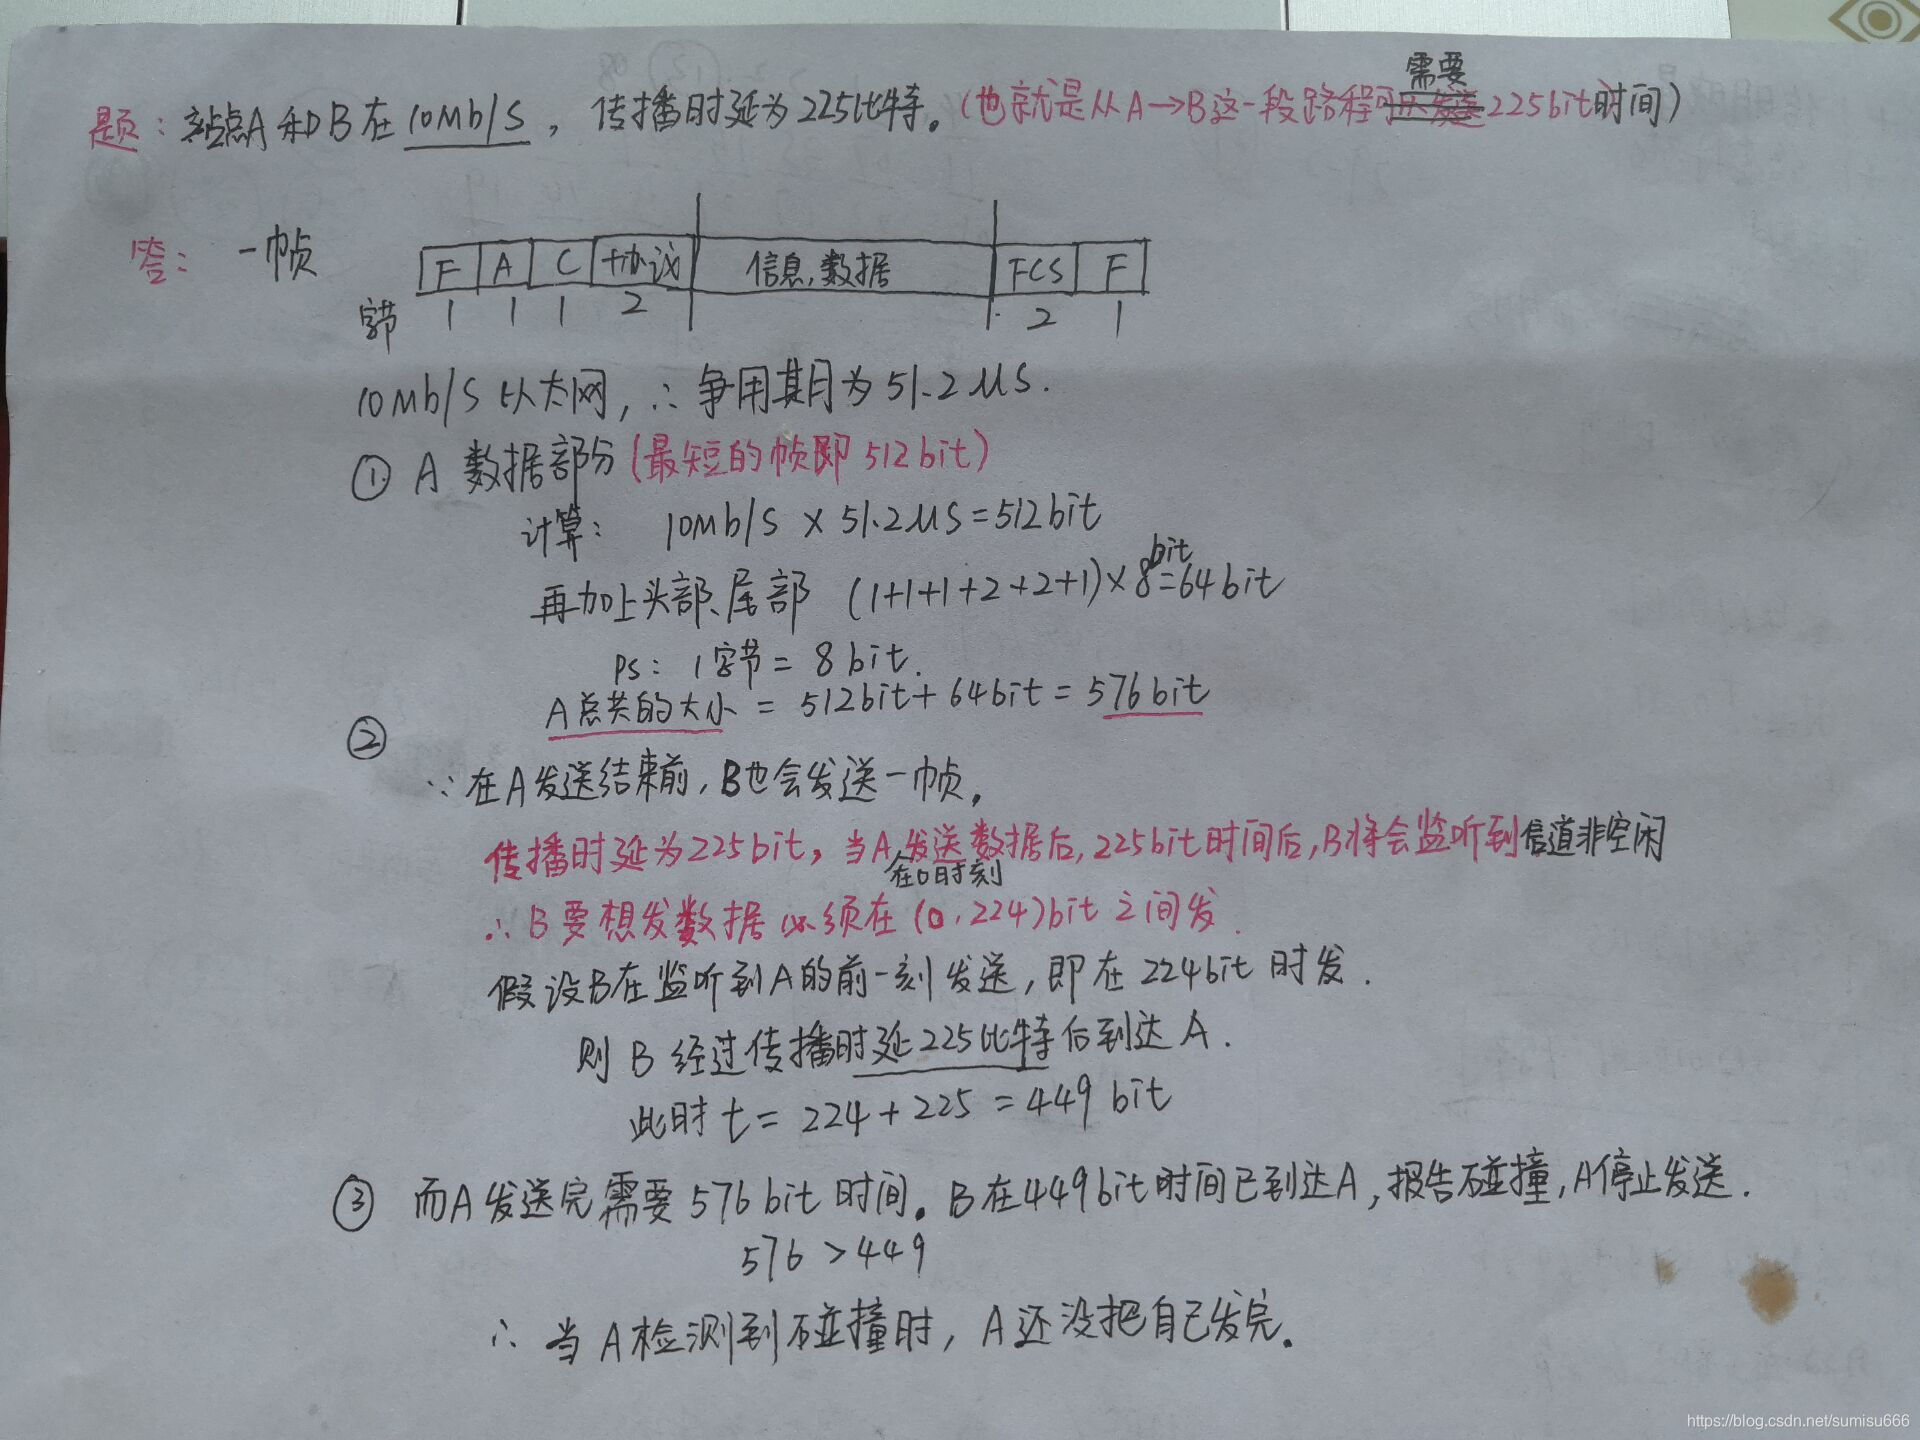 题：站点A和B在10Mb/S，传播时延为225比特。(也就是从A→B这一段路程需要225bit时间)
答：一帧
F A C 协议 信息,数据 FCS F
字节 1 1 1 2 2 1
10Mb/S以太网，∴争用期为51.2μS.
① A 数据部分(最短的帧即512bit)
计算： 10Mb/S × 51.2μS=512bit
再加上头部、尾部 (1+1+1+2+2+1)×8bit=64bit
PS: 1字节=8bit.
A总共的大小 = 512bit+64bit=576bit
②
∵在A发送结束前,B也会发送一帧,
传播时延为225bit,当A发送数据后,225bit时间后,B将会监听到信道非空闲
在0时刻
∴B要想发数据必须在(0,224)bit之间发.
假设B在监听到A的前一刻发送,即在224bit时发.
则B经过传播时延225比特后到达A.
此时t=224+225=449bit
③ 而A发送完需要576bit时间。B在449bit时间已到达A,报告碰撞,A停止发送.
576>449
∴当A检测到碰撞时，A还没把自己发完。
https://blog.csdn.net/sumisu666